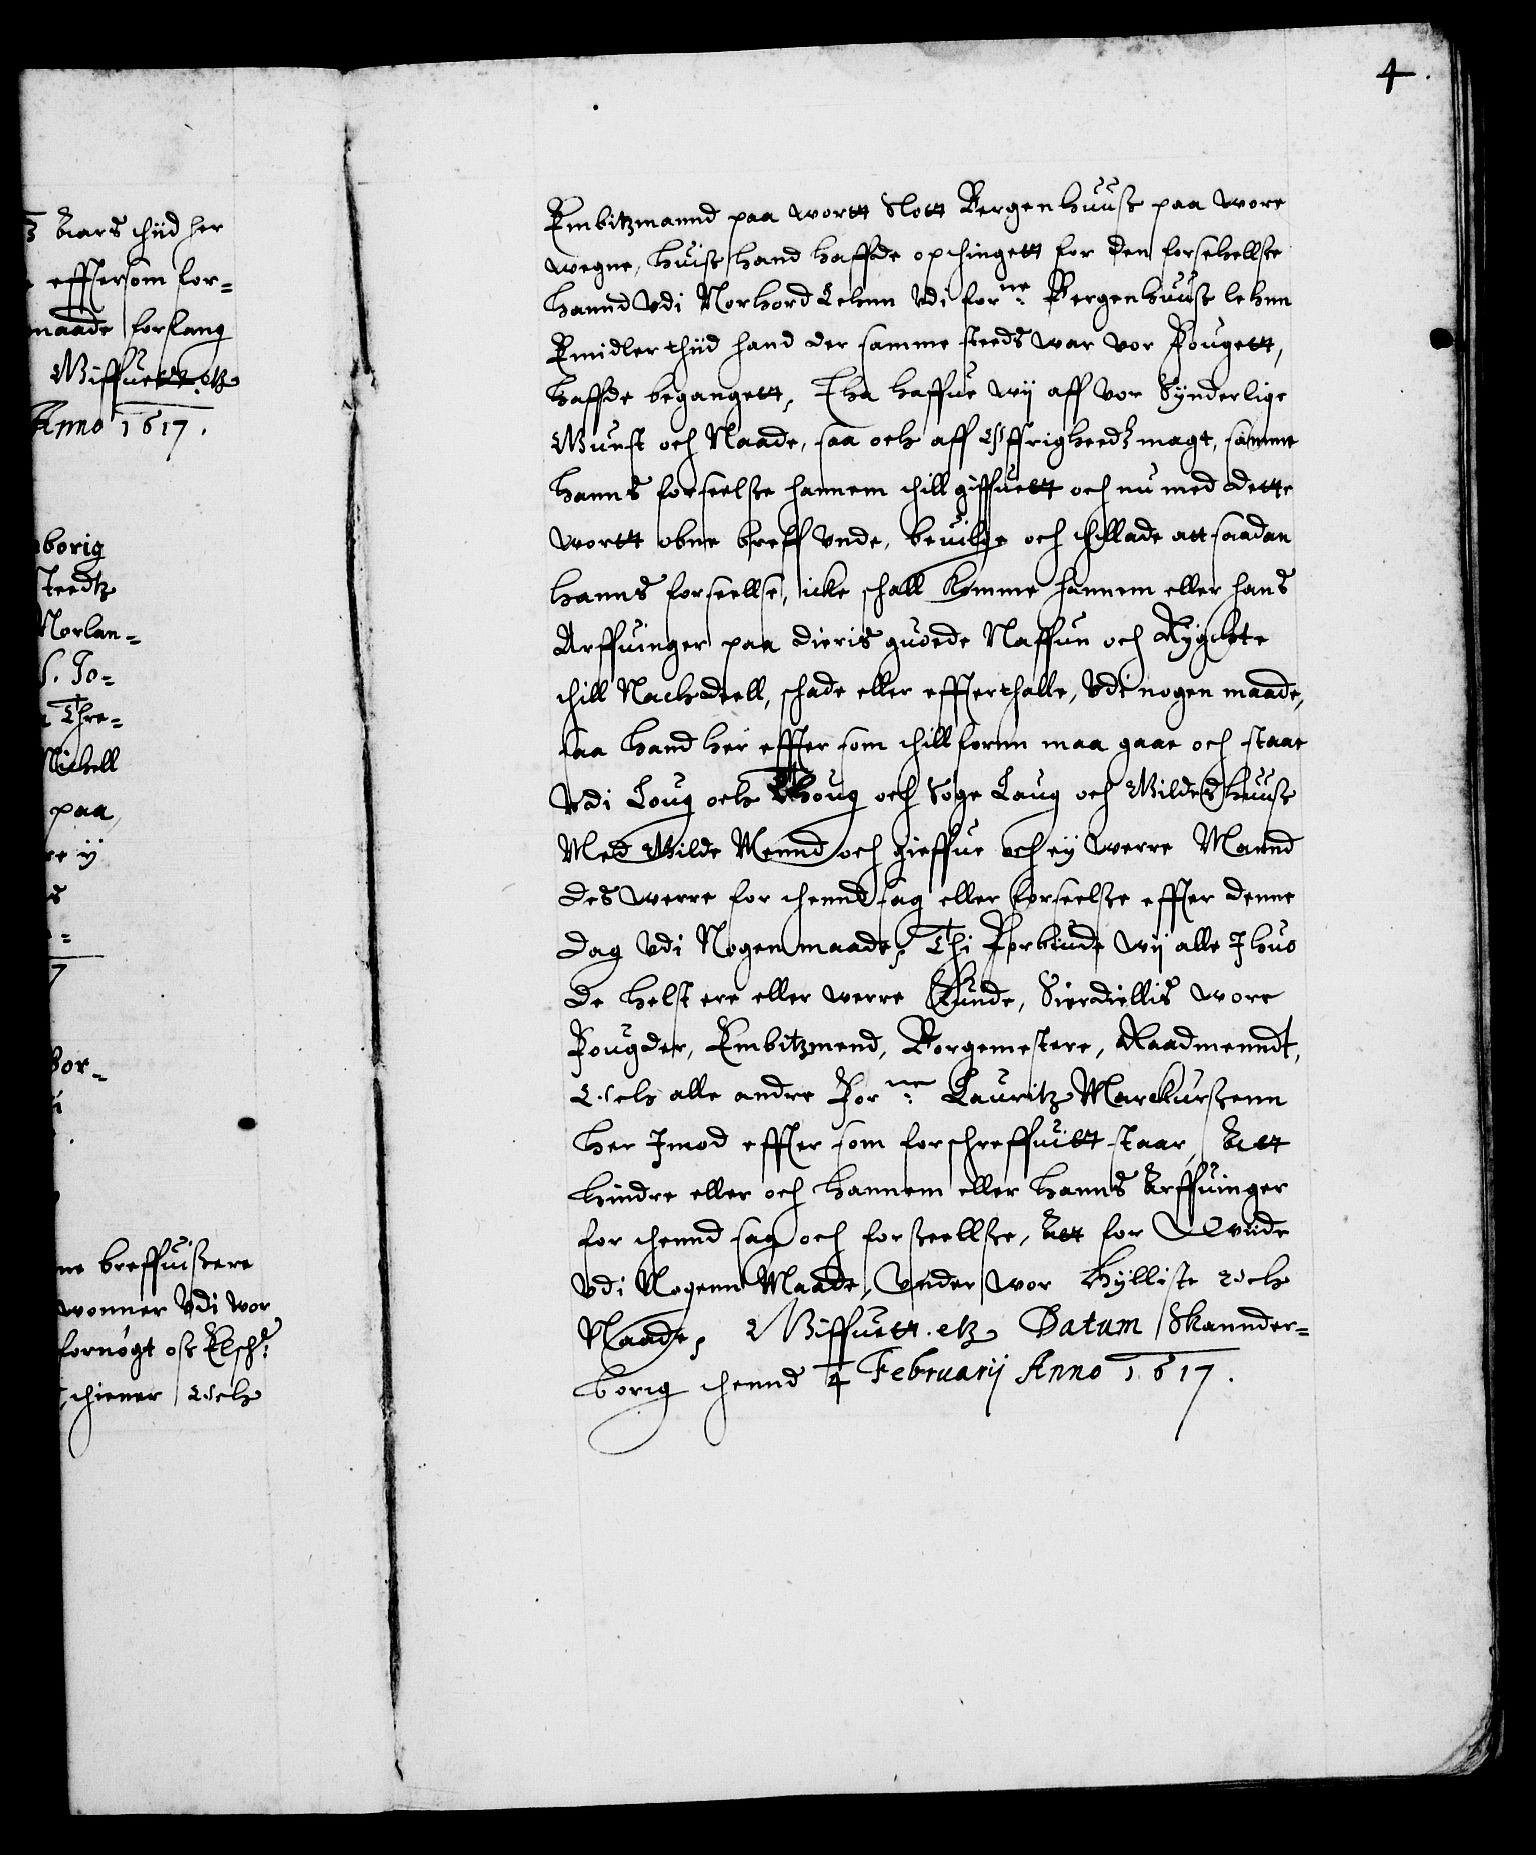 4.
Aars thiid her
effthersom for=
maade forlang
Giffuett. etz
Anno 1617.
borig
steedtz
Norlan=
S. Jo=
Thre=
Michell
paa
ij
bor=
ne breffuisere
wonner Vdi Vor
fornøgt ose Elsch:
thiener Och
Embitzmannd paa wortt Slott Bergenhuuse paa wore
wegne, huise hand haffde opthingett for den forsehellse
hannd Vdi Norhord Lehnn Vdi forne: Bergenhuuse lehnn
Emidlerthiid hand der samme steeds war vor Fougett,
haffde begangett, Tha haffue wij aff vor Synderlige
Gunst och Naade, saa och aff Øffrigheedz magt, samme
hanns forseelse hannem thill giffuett och nu med dette
wortt obne breff Vnde, beuilge och thillade att saadan
hanns forseellse, icke schall komme hannem eller hans
Arffuinger paa dieris guoede Naffun och Rygtte
thill Nachdeell, schade eller effterthalle, Vdi nogen maade,
saa hand her effter som thillforun maa gaae och staae
Vdi Loug och Thoug och Søge Laug och Gildeshuuse
Med Gilde Mennd och gieffue och ey werre Mannd
des werre for thennd sag eller forseelse effter denne
dag Vdi Nogen maade, Thi Forbiude wij alle Jhuo
de helst ere eller werre kunde, Sierdiellis wore
Fougder, Embitzmend, Borgemestere, Raadmenndt,
Och alle andre Forne: Lauritz Marckursenn
her Jmod effter som forschreffuitt staar, Att
hindre eller och hannem eller hanns Arffuinger
for thennd sag och forseellse, Att for Wiide
Vdi Nogenn Maade, Vnder wor Hylliste Och
Naade, Giffuett. etz Datum Skannder=
borig thennd 4 Februarij Anno 1617.